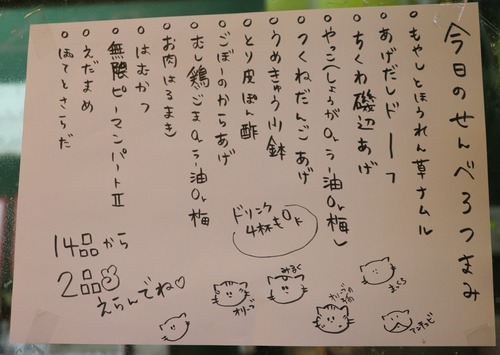 今日のせんべろつまみ
もやしとほうれん草ナムル
あげだしドーフ
ちくわ磯辺あげ
やっこ(しょうがorラー油or梅)
つくねだんごあげ
うめきゅう小鉢
とり皮ぽん酢
ごぼーのからあげ
むし鶏ごまorラー油or梅
お肉はるまき
はむかつ
無限ピーマンパートⅡ
えだまめ
ぽてとさらだ
ドリンク
4杯もOk
14品から
2品
えらんでね♡
オリーブ
みるく